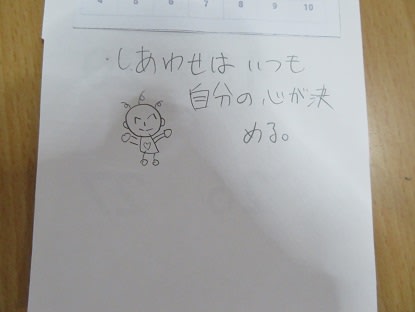 4 5 6 7 8 9 10
・しあわせは いつも
自分の心が決
める。